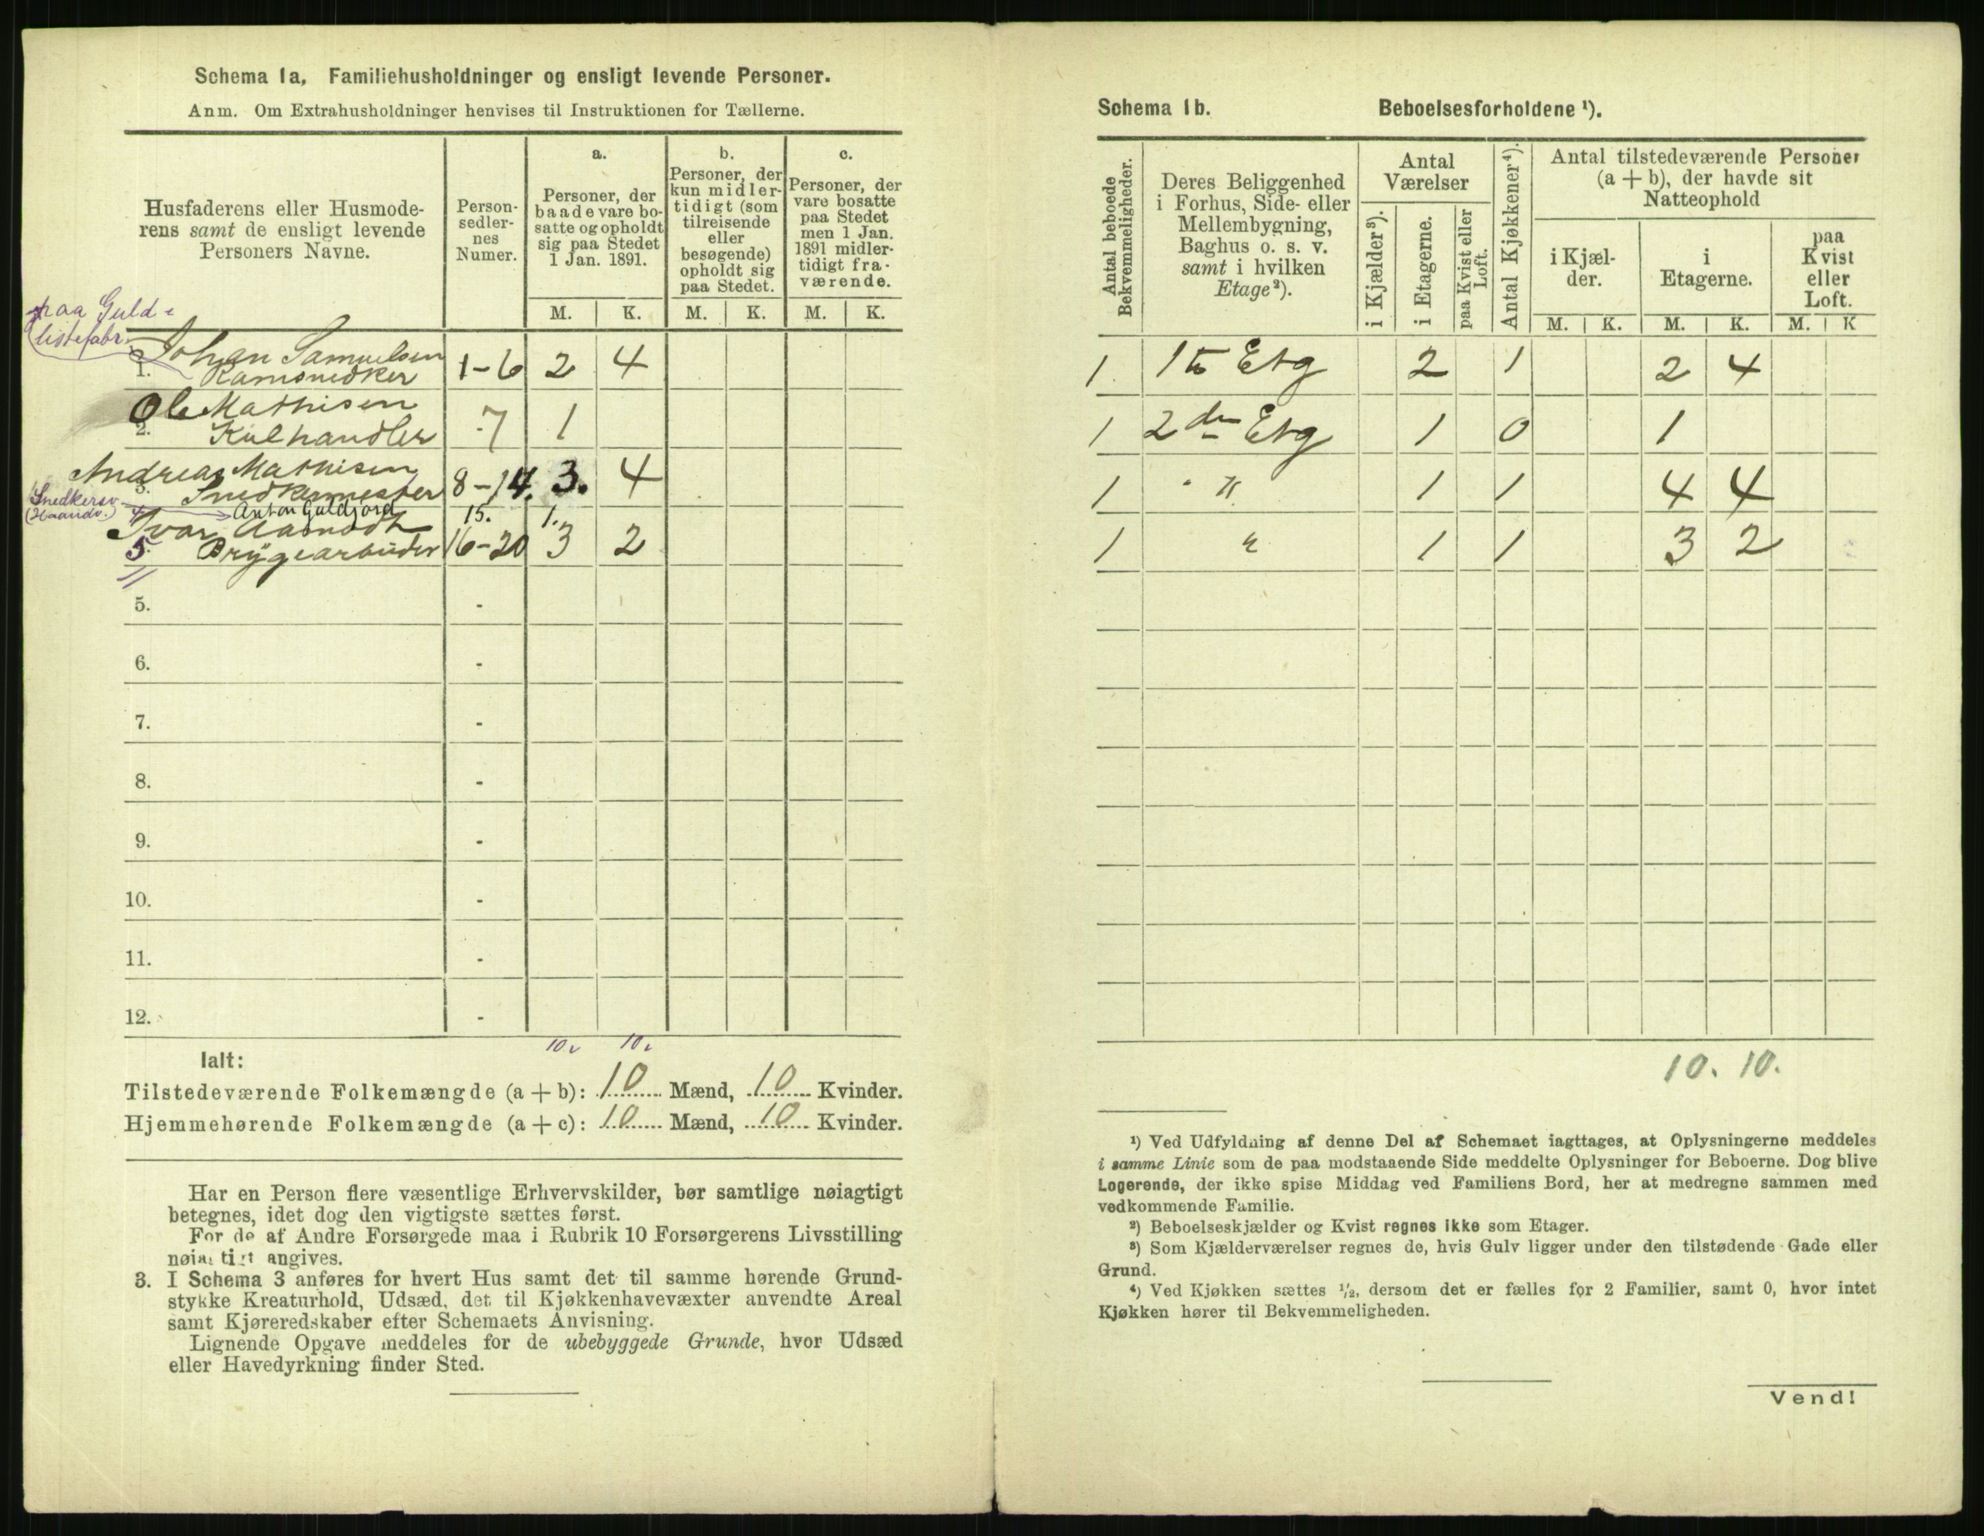 Schema 1a, Familiehusholdninger og ensligt levende Personer.
Anm. Om Extrahusholdninger henvises til Instruktionen for Tællerne.
Husfaderens eller Husmode-
rens samt de ensligt levende
Personers Navne.
Person-
sedler-
nes
Numer.
a.
Personer, der
baade vare bo-
satte og opholdt
sig paa Stedet
1 Jan. 1891.
b.
Personer, der
kun midler-
tidigt (som
tilreisende
eller
besøgende)
opholdt sig
paa Stedet.
c.
Personer, der
vare bosatte
paa Stedet
men 1 Jan.
1891 midler-
tidigt fra-
værende.
M. K. M. K. M. K.
paa Guld-
listefabr.
1. Johan Samuelsen 1-6 2 4
Ramsnedker
2. Ole Mathisen -7 1
Kulhandler
3. Andreas Mathisen 8-14. 3. 4
Snedkermester
Snedkersv.
(Haandv.) 4. Anton Guldjord 15. 1.
Ivar Aasnodt
5. Bryggearbeider 16-20 3 2
5. -
6. -
7. -
8. -
9. -
10. -
11. -
12. -
10. 10.
Ialt:
Tilstedeværende Folkemængde (a + b): 10 Mænd, 10 Kvinder.
Hjemmehørende Folkemængde (a + c): 10 Mænd, 10 Kvinder.
Har en Person flere væsentlige Erhvervskilder, bør samtlige nøiagtigt
betegnes, idet dog den vigtigste sættes først.
For de af Andre Forsørgede maa i Rubrik 10 Forsørgerens Livsstilling
nøiagtigt angives.
3. I Schema 3 anføres for hvert Hus samt det til samme hørende Grund-
stykke Kreaturhold, Udsæd, det til Kjøkkenhavevæxter anvendte Areal
samt Kjøreredskaber efter Schemaets Anvisning.
Lignende Opgave meddeles for de ubebyggede Grunde, hvor Udsæd
eller Havedyrkning finder Sted.
Schema 1b. Beboelsesforholdene ¹).
Antal beboede
Bekvemmeligheder.
Deres Beliggenhed
i Forhus, Side- eller
Mellembygning,
Baghus o. s. v.
samt i hvilken
Etage²).
Antal
Værelser
i Kjælder³).
i Etagerne.
paa Kvist eller
Loft.
Antal Kjøkkener⁴).
Antal tilstedeværende Personer
(a + b), der havde sit
Natteophold
i Kjæl-
der.
i
Etagerne.
paa
Kvist
eller
Loft.
M. K. M. K. M. K
1. 1ste Etg 2 1 2 4
1 2den Etg 1 0 1
1 " " 1 1 4 4
1 " 1 1 3 2
10. 10.
¹) Ved Udfyldning af denne Del af Schemaet iagttages, at Oplysningerne meddeles
i samme Linie som de paa modstaaende Side meddelte Oplysninger for Beboerne. Dog blive
Logerende, der ikke spise Middag ved Familiens Bord, her at medregne sammen med
vedkommende Familie.
²) Beboelseskjælder og Kvist regnes ikke som Etager.
³) Som Kjælderværelser regnes de, hvis Gulv ligger under den tilstødende Gade eller
Grund.
⁴) Ved Kjøkken sættes ½, dersom det er fælles for 2 Familier, samt 0, hvor intet
Kjøkken hører til Bekvemmeligheden.
Vend!